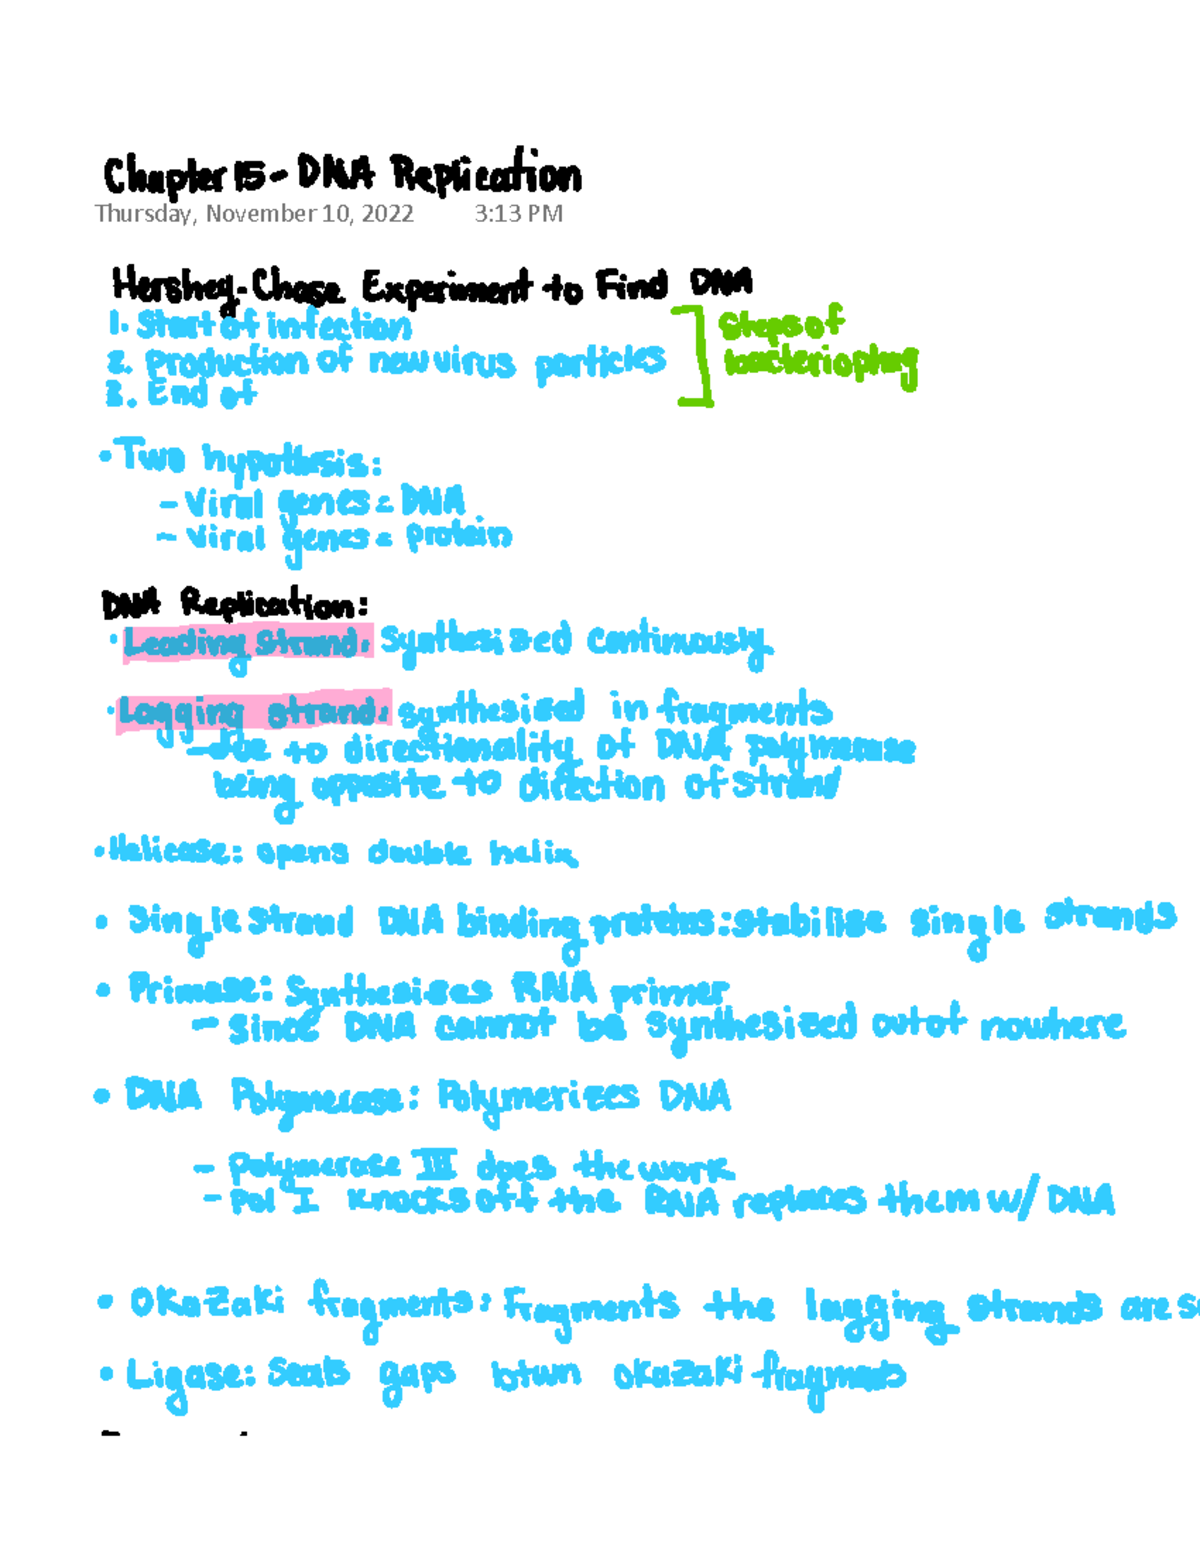 Chapter 15 - DNA Replication
Thursday, November 10, 2022 3:13 PM
Hershey-Chase Experiment to Find DNA
1. Start of infection
2. Production of new virus particles
3. End of
Steps of
bacteriophag
• Two hypothesis:
- Viral genes = DNA
- Viral genes = protein
DNA Replication:
• Leading Strand: Synthesized continuously
• Lagging strand: synthesized in fragments
- due to directionality of DNA polymerase
being opposite to direction of strand
• Helicase: opens double helix
• Single Strand DNA binding proteins: stabilise single strands
• Primase: Synthesises RNA primer
- Since DNA cannot be synthesized out of nowhere
• DNA Polymerase: Polymerizes DNA
- Polymerase III does the work
- Pol I knocks off the RNA replaces them w/ DNA
• Okazaki fragments: Fragments the lagging strands are s
• Ligase: Seals gaps btwn okazaki fragments